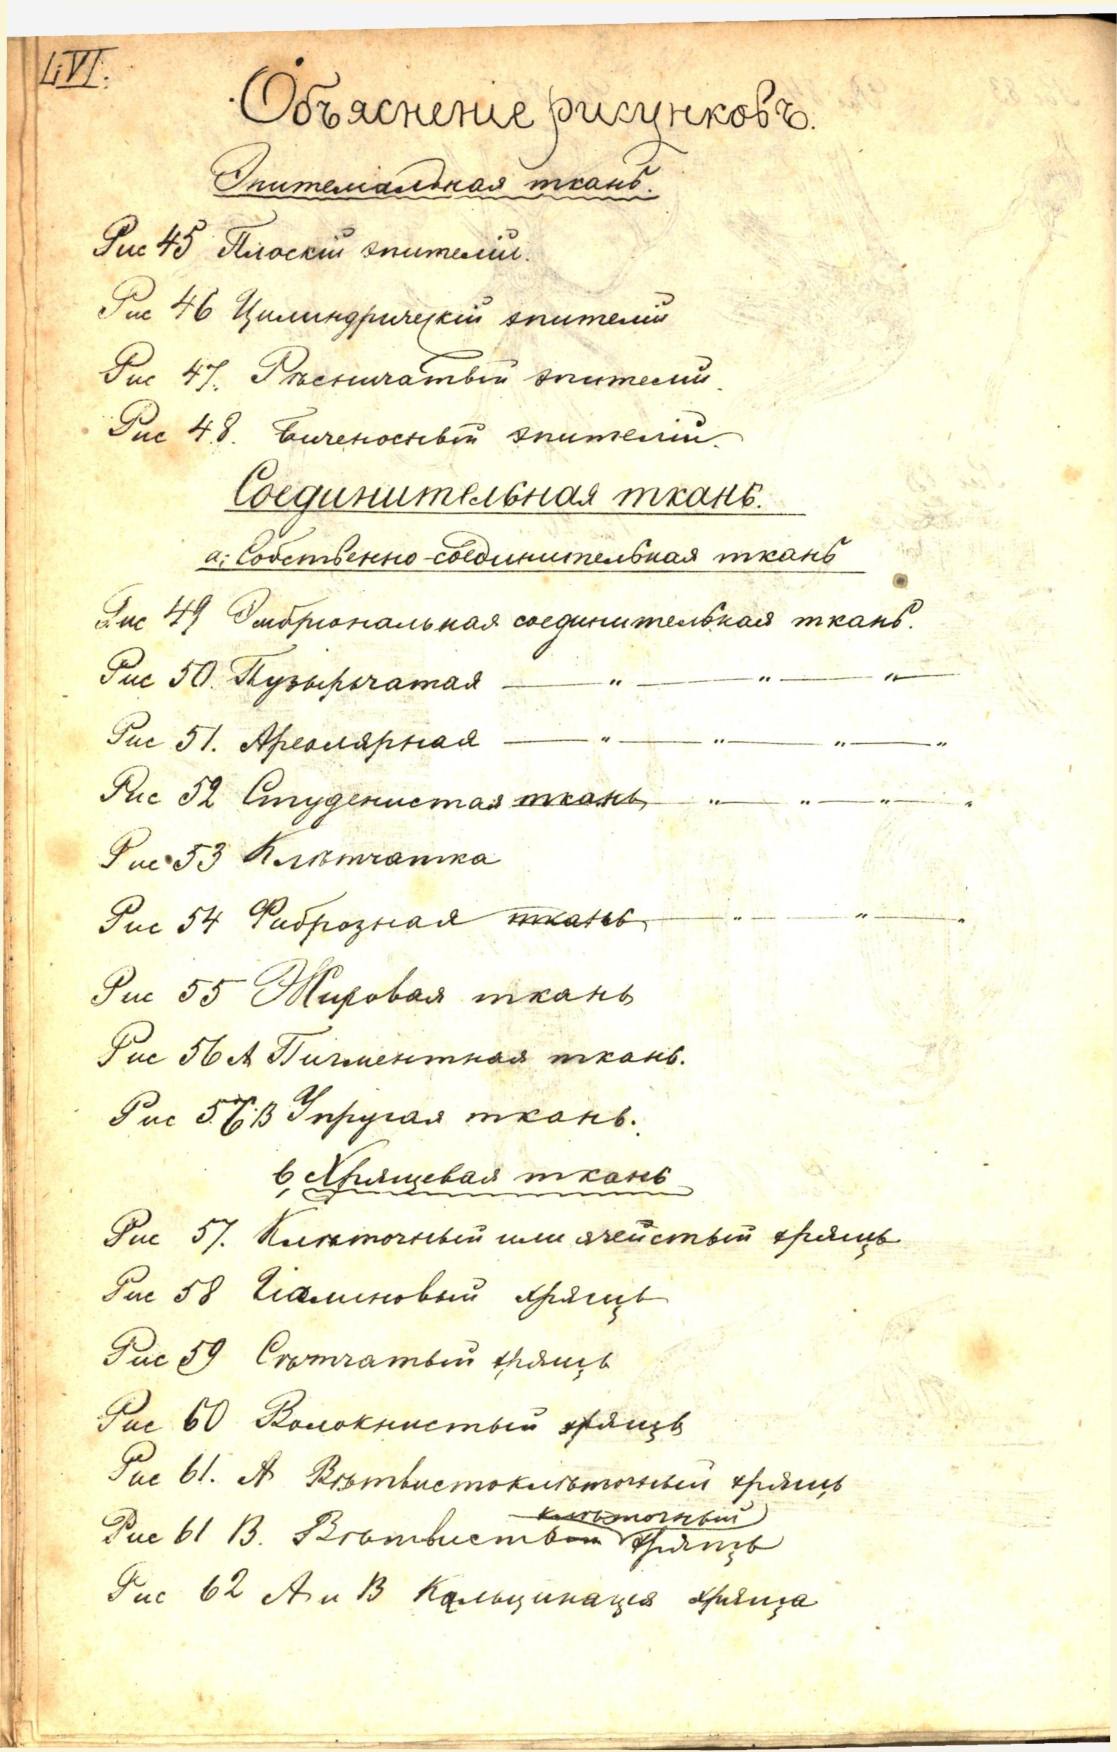 LVI.
Объясненіе рисунковъ.
Эпителіальная ткань.
Рис 45 Плоскій эпителій.
Рис 46 Цилиндрическій эпителій
Рис 47. Рѣсничатый эпителій.
Рис 48. Биченосный эпителій.
Соединительная ткань.
а; Собственно-соединительная ткань
Рис 49 Эмбріональная соединительная ткань.
Рис 50. Пузырьчатая — " — " — " —
Рис 51. Ареолярная — " — " — " — "
Рис 52 Студенистая ткань — " — " — " — "
Рис 53 Клѣтчатка
Рис 54 Фиброзная ткань — " — " — "
Рис 55 Жировая ткань
Рис 56 А Пигментная ткань.
Рис 56 В Упругая ткань.
в, Хрящевая ткань
Рис 57. Клѣточный или ячейстый хрящъ
Рис 58 Гіалиновый хрящъ
Рис 59 Сѣтчатый хрящъ
Рис 60 Волокнистый хрящъ
Рис 61. А Вѣтвистоклѣточный хрящъ
клѣточный
Рис 61 В. Вѣтвистый хрящъ
Рис 62 А и В Кальцинація хряща